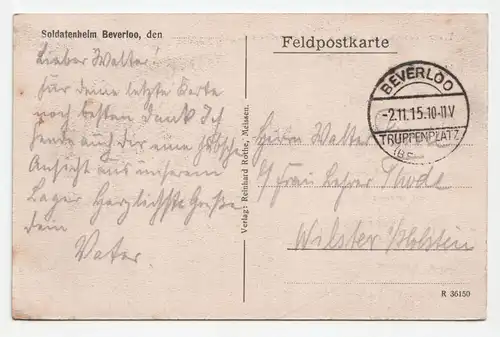 Soldatenheim Beverloo, den
Lieber Walter!
Für deine letzte Karte
noch besten Dank Ich
sende auch dir eine hübsche
Ansicht aus unserem
Lager Herzlichste Grüße
dein
Vater.
Verlag: Reinhard Rothe, Meissen.
Feldpostkarte
BEVERLOO
-2.11.15.10-11V
TRUPPENPLATZ
Herrn Walter
p/ Frau Lehrer Thode
Wilster i/Holstein
R 36150